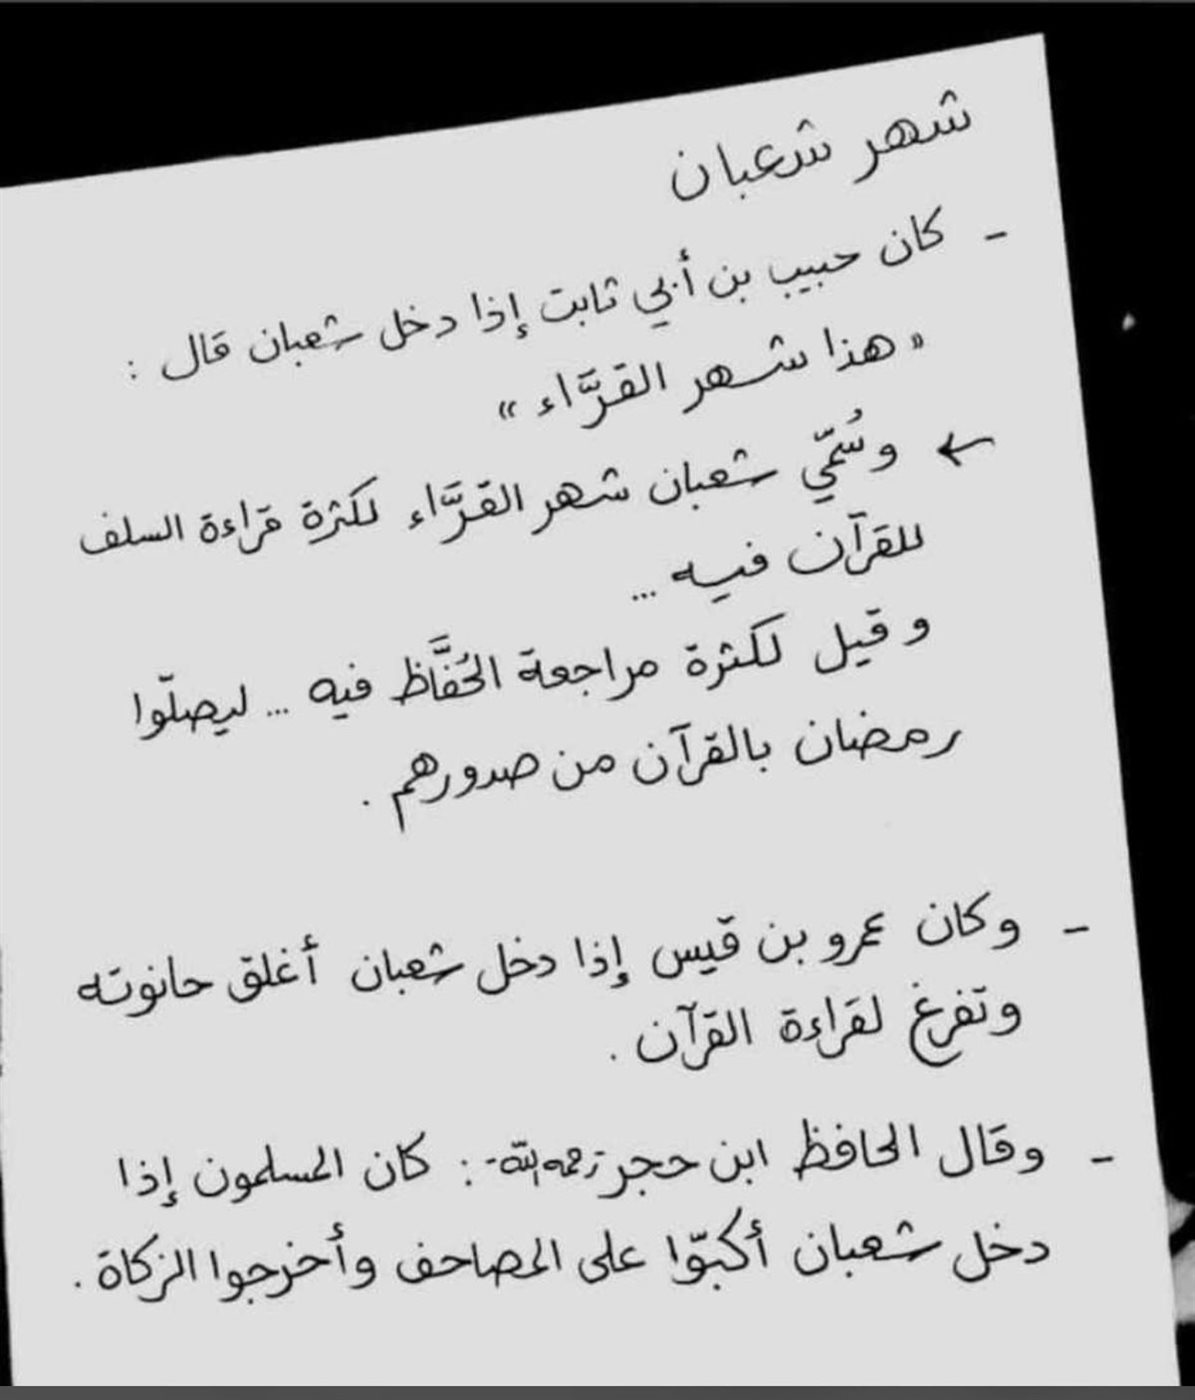 شهر شعبان
- كان حبيب بن أبي ثابت إذا دخل شعبان قال :
« هذا شهر القرَّاء »
← وسُمّي شعبان شهر القرَّاء لكثرة قراءة السلف
للقرآن فيه ...
وقيل لكثرة مراجعة الحُفَّاظ فيه ... ليصلّوا
رمضان بالقرآن من صدورهم .
- وكان عمرو بن قيس إذا دخل شعبان أغلق حانوته
وتفرغ لقراءة القرآن .
- وقال الحافظ ابن حجر -رحمه الله- : كان المسلمون إذا
دخل شعبان أكبّوا على المصاحف وأخرجوا الزكاة .